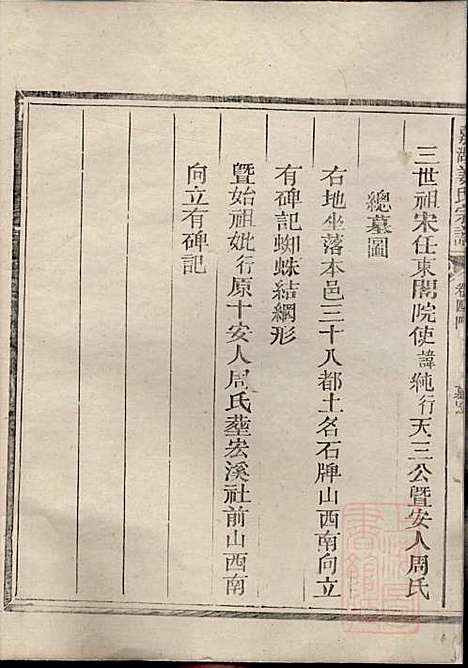 姜氏宗譜 卷四
三世祖宋任東閣院使諱純行天三公暨安人周氏
總墓圖
右地坐落本邑三十八都土名石牌山西南向立
有碑記蜘蛛結網形
暨始祖妣行原十安人周氏塟宏溪社前山西南
向立有碑記